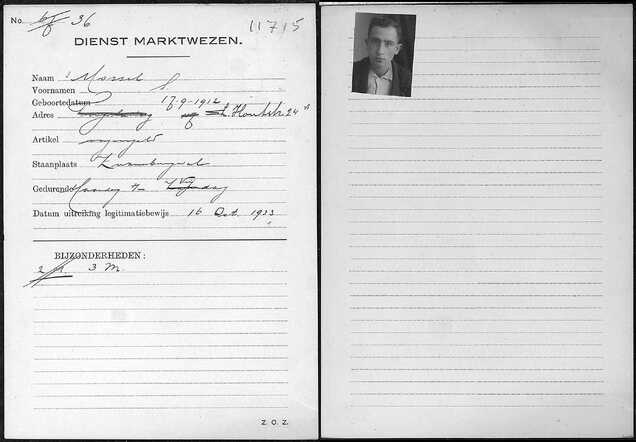 No. 36 11715
DIENST MARKTWEZEN.
Naam Mossel
Voornamen S
Geboortedatum 17-9-1912
Adres Houtstr 24
Artikel
Staanplaats
Gedurende Maandag t/m Vrijdag
Datum uitreiking legitimatiebewijs 16 Oct. 1933
BIJZONDERHEDEN:
3 M.
Z. O. Z.